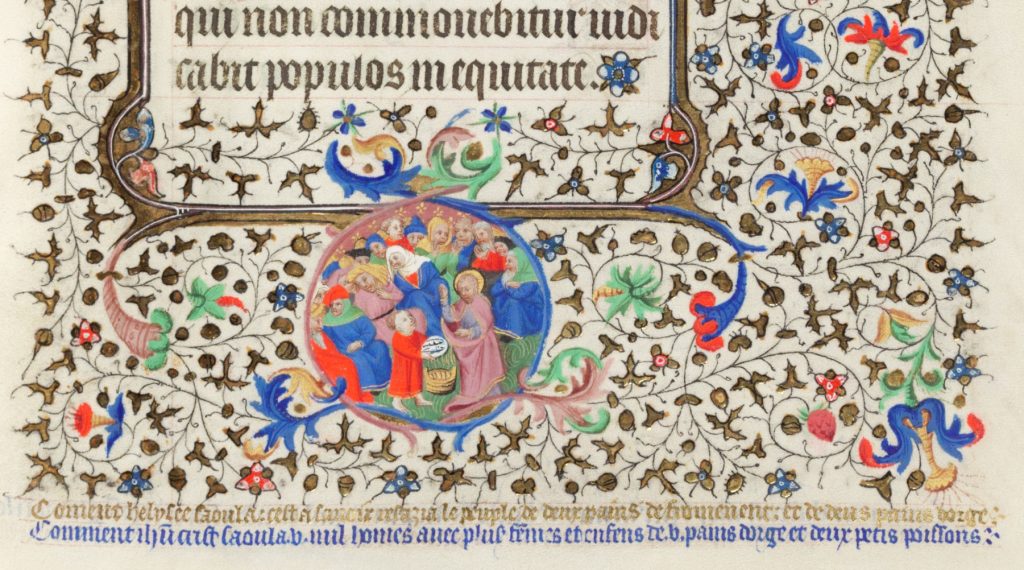 qui non commouebitur iudi
cabit populos in equitate.
Coment helysee saoula cest a sauoir resazia le peuple de deux pains de fromenent: et de deus pains dorge:
Comment ihū crist saoula .v. mil homes auec plus fēmes et enfens de .v. pains dorge et deux petis poissons: